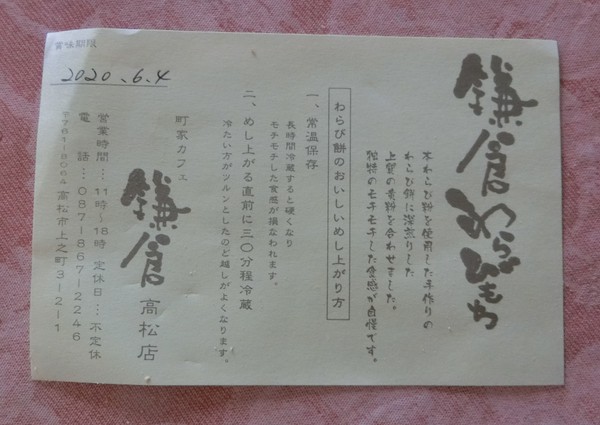 鎌倉わらびもち
本わらび粉を使用した手作りの
わらび餅に深煎りした
上質の黄粉を合わせました。
独特のモチモチした食感が自慢です。
わらび餅のおいしいめし上がり方
一、常温保存
長時間冷蔵すると硬くなり
モチモチした食感が損なわれます。
二、めし上がる直前に三〇分程冷蔵
冷たい方がツルンとしたのど越しがよくなります。
町家カフェ
鎌倉 高松店
営業時間…11時〜18時 定休日…不定休
電 話…087-867-2246
〒761-8064 高松市上之町3-2-1
賞味期限
2020.6.4